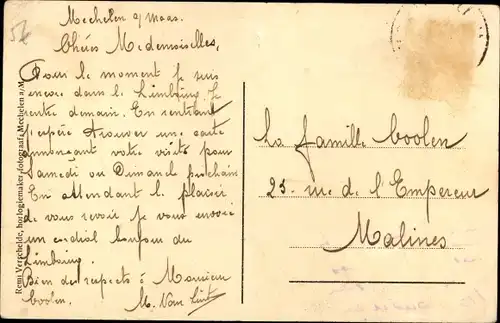 Mechelen a/ Maas.
Chères Mesdemoiselles,
Pour le moment je suis
encore dans le Limbourg. Je
rentre demain. En rentrant
j'espère trouver une carte
annonçant votre visite pour
Samedi ou Dimanche prochain
En attendant le plaisir
de vous revoir je vous envoie
un cordial bonjour du
Limbourg.
Bien des respects à Monsieur
Coolen.
M. Van
La famille Coolen
25. rue de l'Empereur
Malines
Remi Verschelde, horlogiemaker-fotograaf, Mechelen a/M.